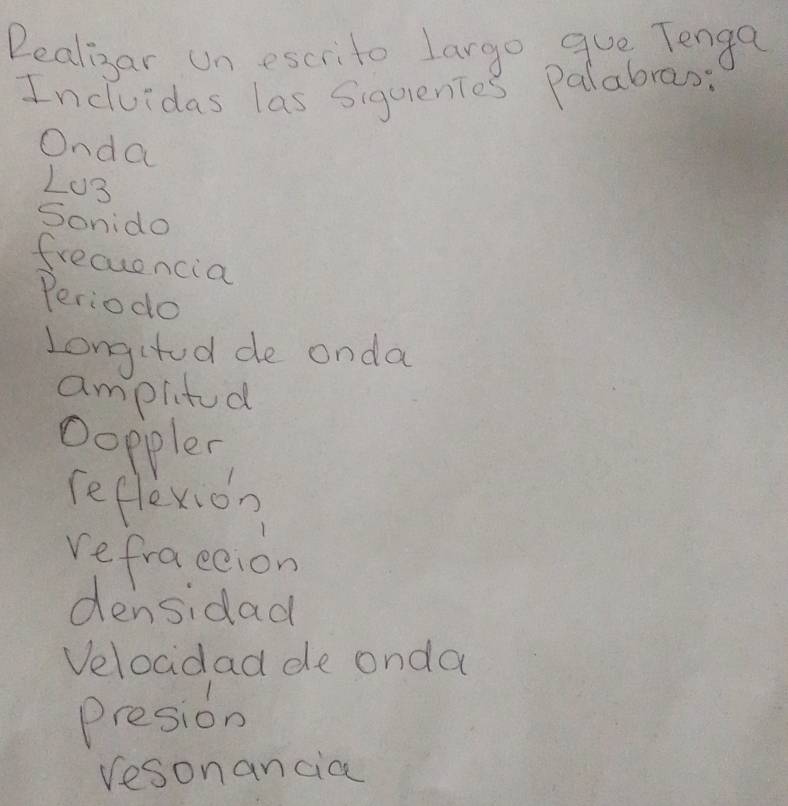 Realizar un escrito largo que Tenga
Incluidas las Siguientes Palabras:
Onda
Luz
Sonido
frecuencia
Periodo
Longitud de onda
amplitud
Doppler
reflexión
refracción
densidad
Velocidad de onda
Presión
resonancia